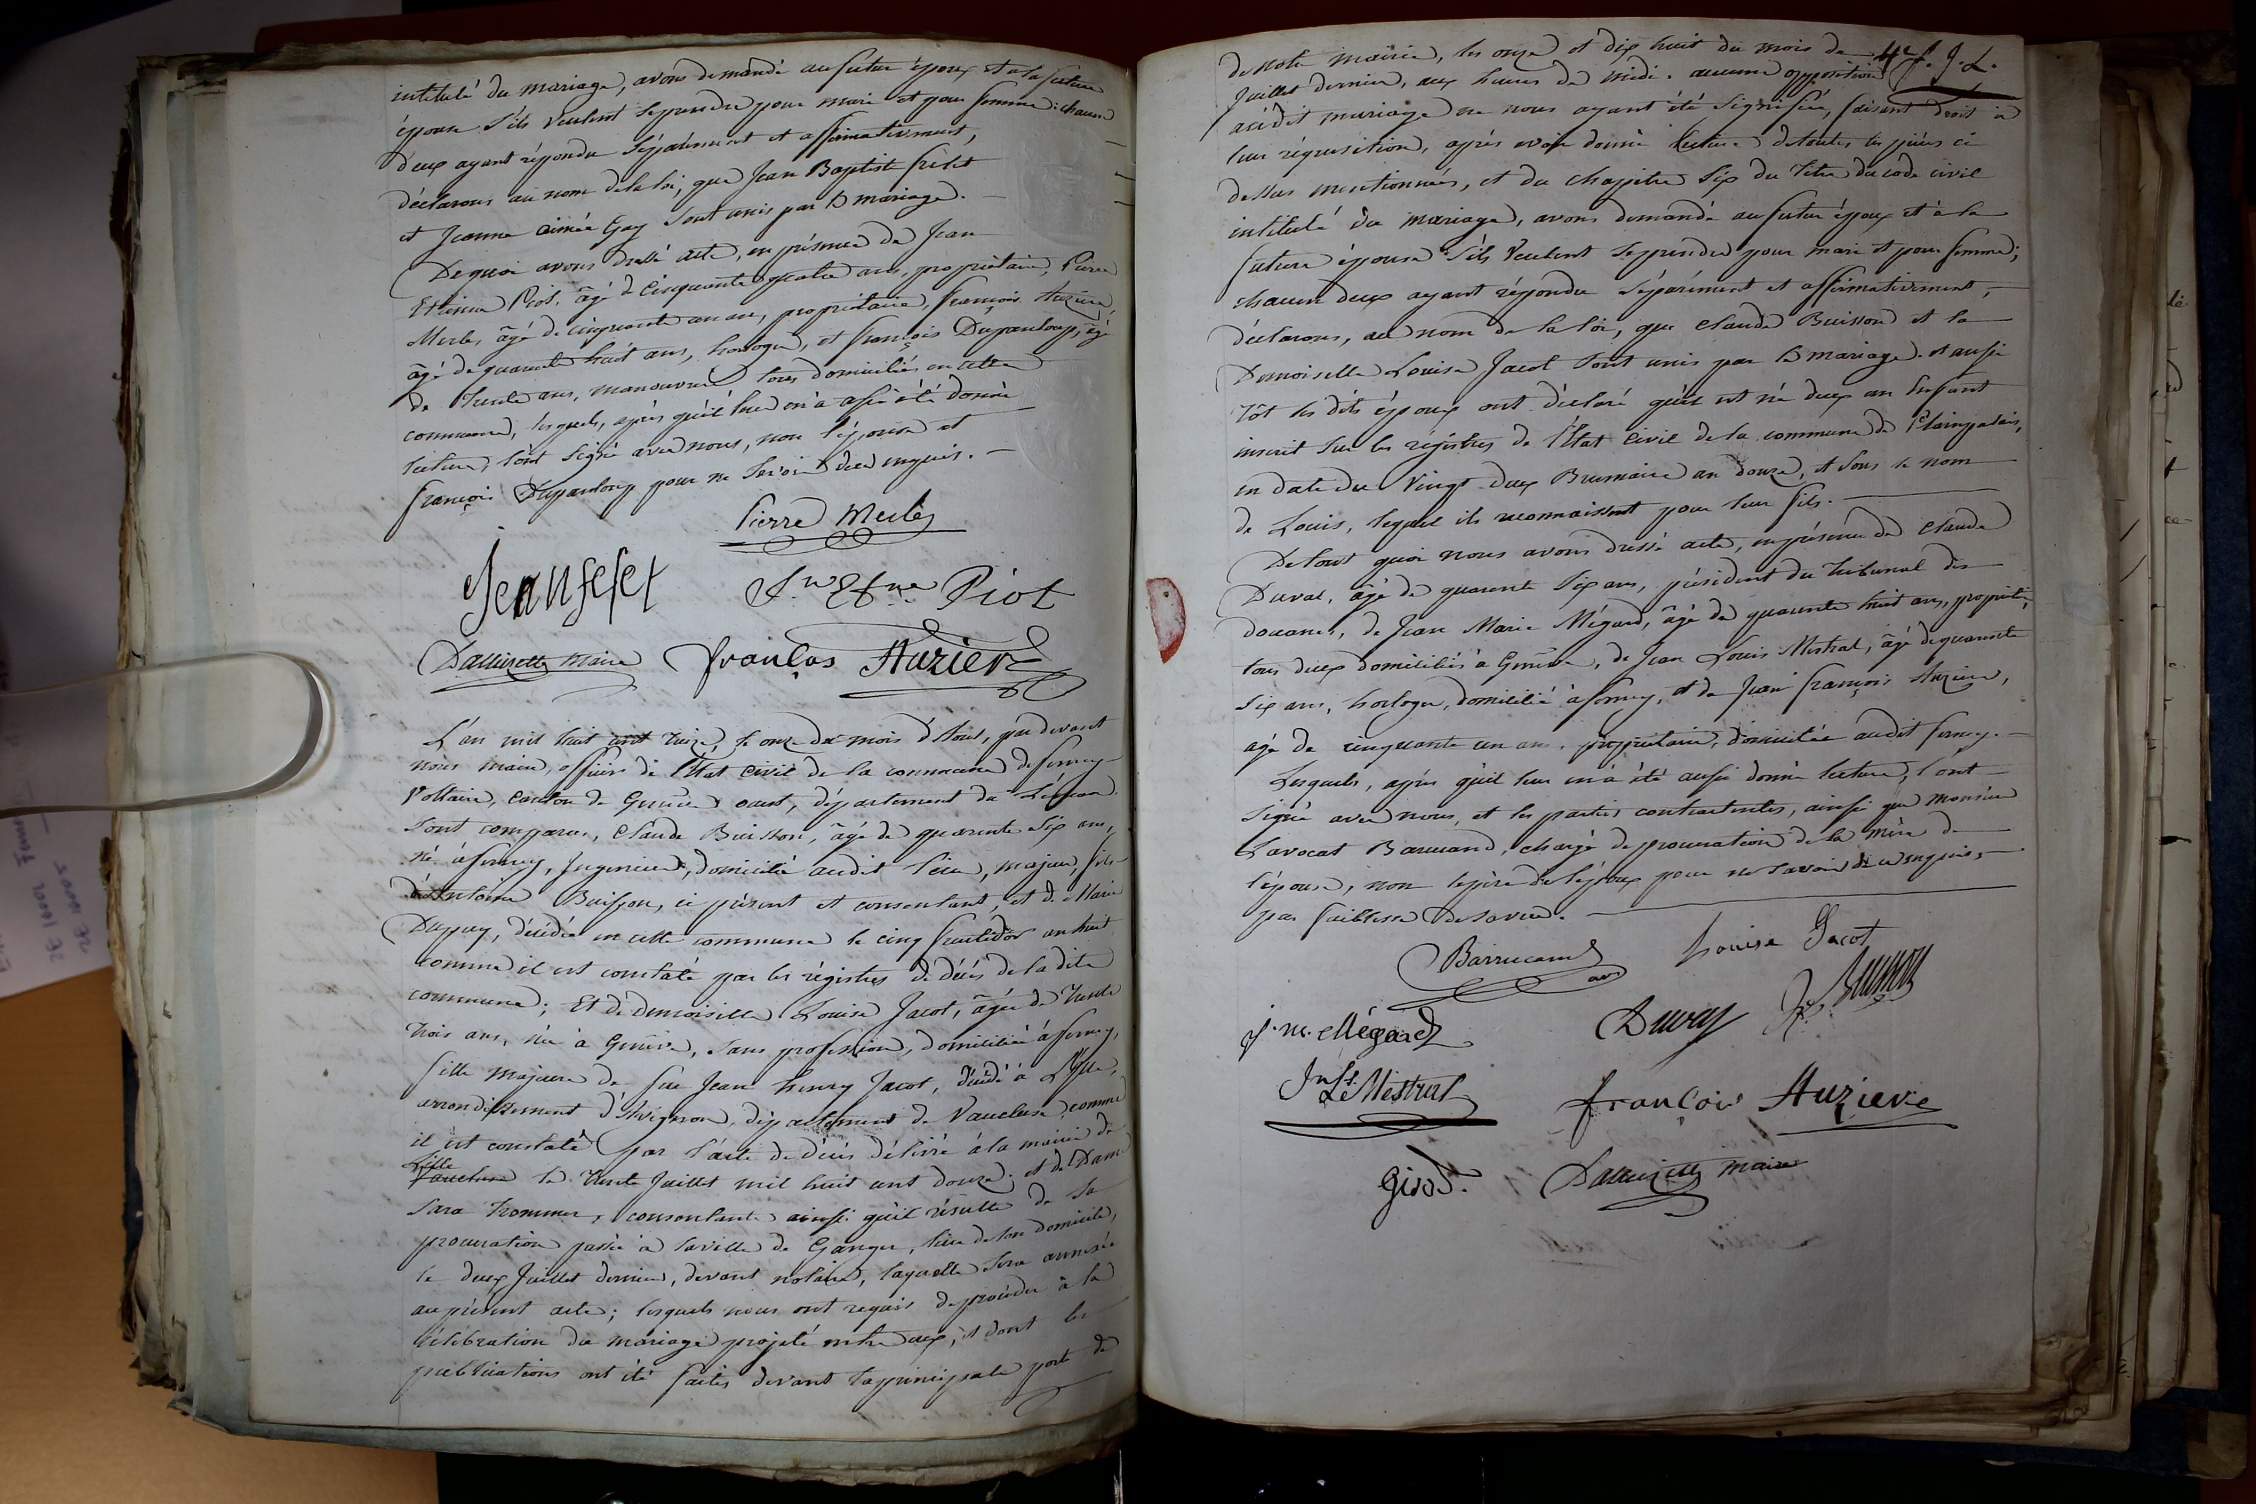 intitulé du mariage, avons demandé au futur époux et à la future
épouse s'ils veulent se prendre pour mari et pour femme: chacun
deux ayant répondu séparément et affirmativement,
déclarons au nom de la loi, que Jean Baptiste
et Jeanne aimée Gay sont unis par le mariage. —
De quoi avons dressé acte, en présence de Jean
Etienne Piot, âgé de cinquante quatre ans, propriétaire, Pierre
Merle, âgé de cinquante un ans, propriétaire, François Auziere,
âgé de quarante huit ans, horloger, et françois Dupanloup, âgé
de Trente ans, manouvrier tous domiciliés en cette
commune, lesquels, après qu'il leur en a aussi été donné
lecture, l'ont signé avec nous, non l'épouse et
françois Dupanloup pour ne savoir de ce enquis. —
Pierre Merle
Jean
Jn Etne Piot
maire
françois Auziere
L'an mil huit cent treize, le onze du mois d'Aout, par devant
nous maire, officier de l'Etat civil de la commune de ferney
Voltaire, canton de Genève ouest, département du Léman
sont comparus, Claude Buisson, âgé de quarante six ans,
né à ferney, Ingenieur, domicilié audit lieu, majeur, fils
d'Antoine Buisson, ci présent et consentant, et de Marie
Dupuy, décédée en cette commune le cinq fructidor an huit
comme il est constaté par les régistres de décès de la dite
commune; Et de demoiselle Louise Jacot, âgée de Trente
trois ans, née à Genève, sans profession, domiciliée à ferney,
fille majeure de feu Jean henry Jacot, décédé à L'Isle,
arrondissement d'Avignon, département de Vaucluse, comme
il est constaté par l'acte de décès délivré à la mairie de
Lille
Vaucluse le Trente Juillet mil huit cent douze; et de Dame
Sara Trommer, consentante ainsi qu'il résulte de sa
procuration passée à la ville de Ganges, lieu de son domicile,
le deux Juillet dernier, devant notaire, laquelle sera annexée
au présent acte; lesquels nous ont requis de procéder à la
célébration du mariage projeté entre eux, et dont les
publications ont été faites devant la principale porte de
de notre mairie, les onze et dix huit du mois de
Juillet dernier, aux heures de midi. aucune opposition
audit mariage ne nous ayant été signifiée, faisant droit à
leur réquisition, après avoir donné lecture de toutes les pièces ci
dessus mentionnées, et du chapitre Six du Titre du code civil
intitulé du mariage, avons demandé au futur époux et à la
future épouse s'ils veulent se prendre pour mari et pour femme;
chacun deux ayant répondu séparément et affirmativement, —
déclarons, au nom de la loi, que Claude Buisson et la
Demoiselle Louise Jacot sont unis par le mariage. et aussi
tôt les dits époux ont déclaré qu'il est né deux un Enfant
inscrit sur les régistres de l'Etat civil de la commune de Plainpalais,
en date du Vingt deux Brumaire an douze, et sous le nom
de Louis, lequel ils reconnaissent pour leur fils. —
De tout quoi nous avons dressé acte, en présence de Claude
Duval, âgé de quarante six ans, président du Tribunal des
douanes, de Jean Marie Mégard, âgé de quarante huit ans, propriét.
tous deux domiciliés à Genève, de Jean Louis Mestral, âgé de quarante
six ans, horloger, domicilié à ferney, et de Jean françois Auziere,
agé de cinquante un ans, propriétaire, domicilié audit ferney. —
Lesquels, après qu'il leur en a été aussi donné lecture, l'ont
signé avec nous, et les parties contractantes, ainsi que Monsieur
L'avocat Barrucand, chargé de procuration de la mère de
l'épouse, non le père de l'époux pour ne savoir de ce enquis,
par faiblesse de sa vue. —
Barrucand
av
Louise Jacot
J. M. Mégard
Duval
Buisson
Jn Ls Mestral
françois Auziere
Girod.
maire